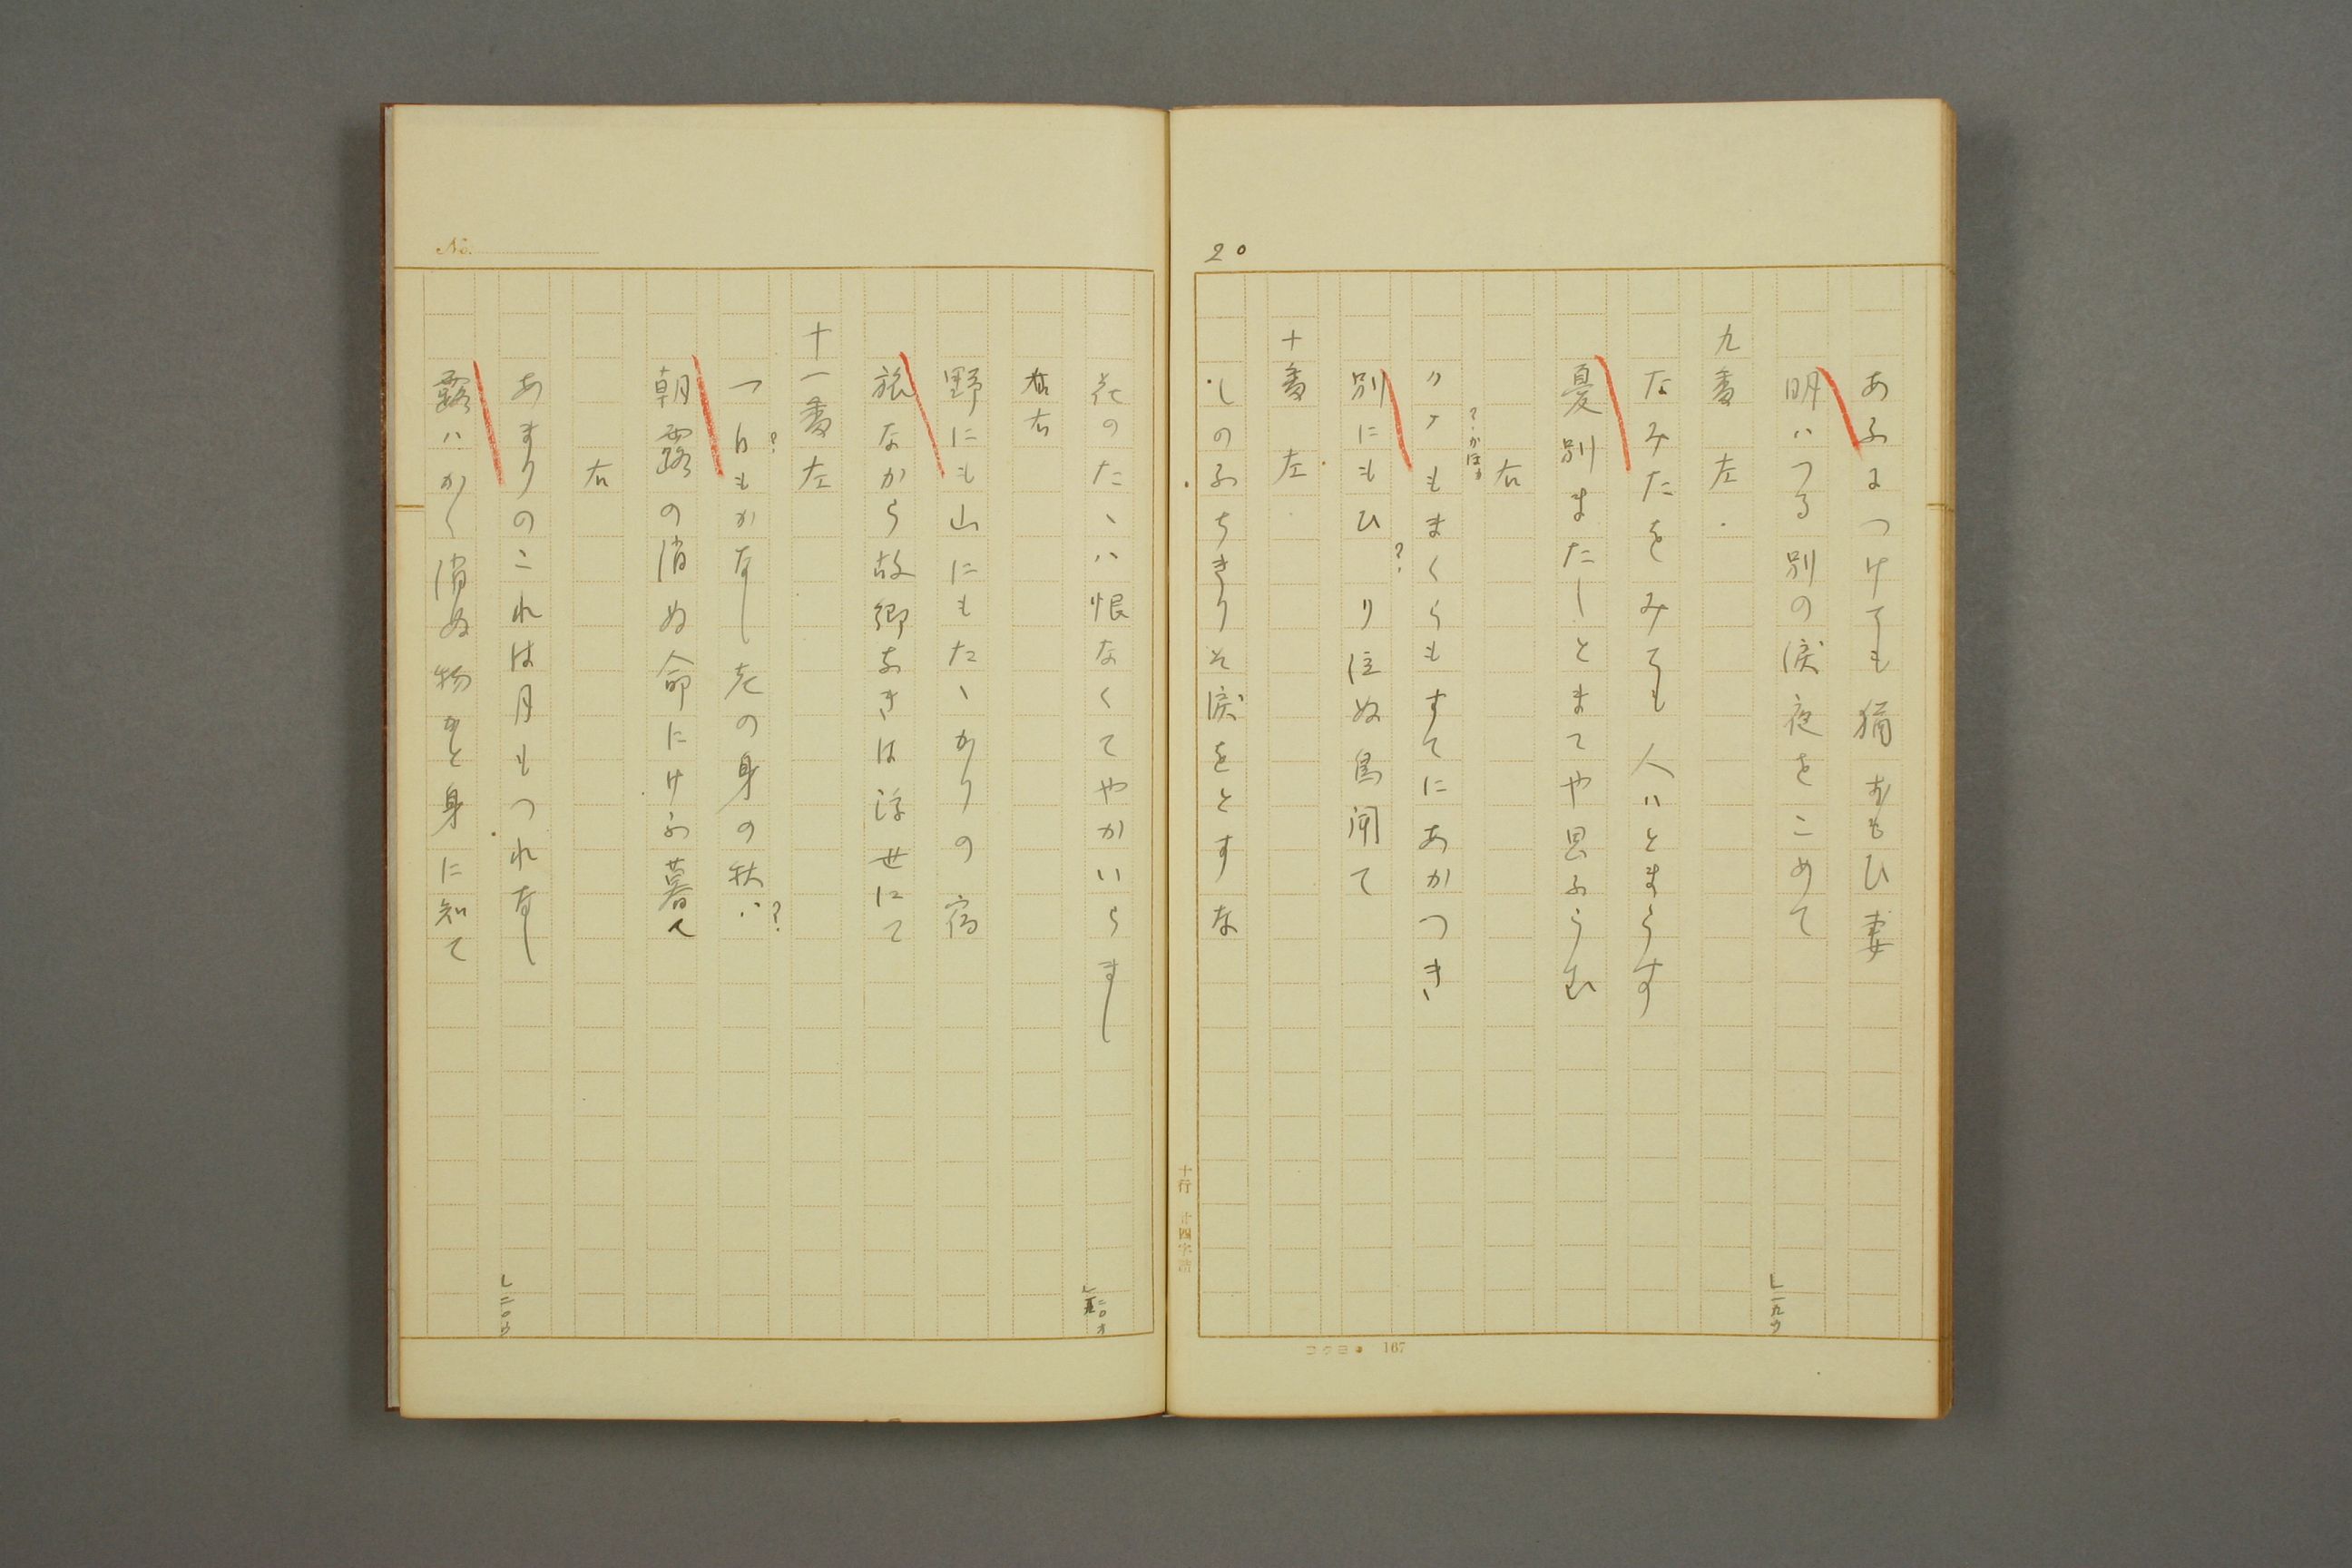 20
あふにつけても猶おもひ妻
明ハつる別の涙夜をこめて
」一九ウ
九番 左
なみたをみても人ハとまらす
憂別またしとまてや思ふらむ
右
もまくらもすてにあかつき
別にもひ り注ぬ鳥聞て
?
十番 左
しのふちきりそ涙をとすな
十行 廿四字詰
コクヨ 167
No.
花のたゝハ恨なくてやかいらまし
」二〇オ
右
野にも山にもたゝかりの宿
旅なから故郷なきは浮世にて
十一番 左
つ日もかなし老の身の秋ハ
? ?
朝露の消ぬ命にけふ暮て
右
あまりのこれは月もつれなし
」二〇ウ
露ハかく消ぬ物かと身に知て